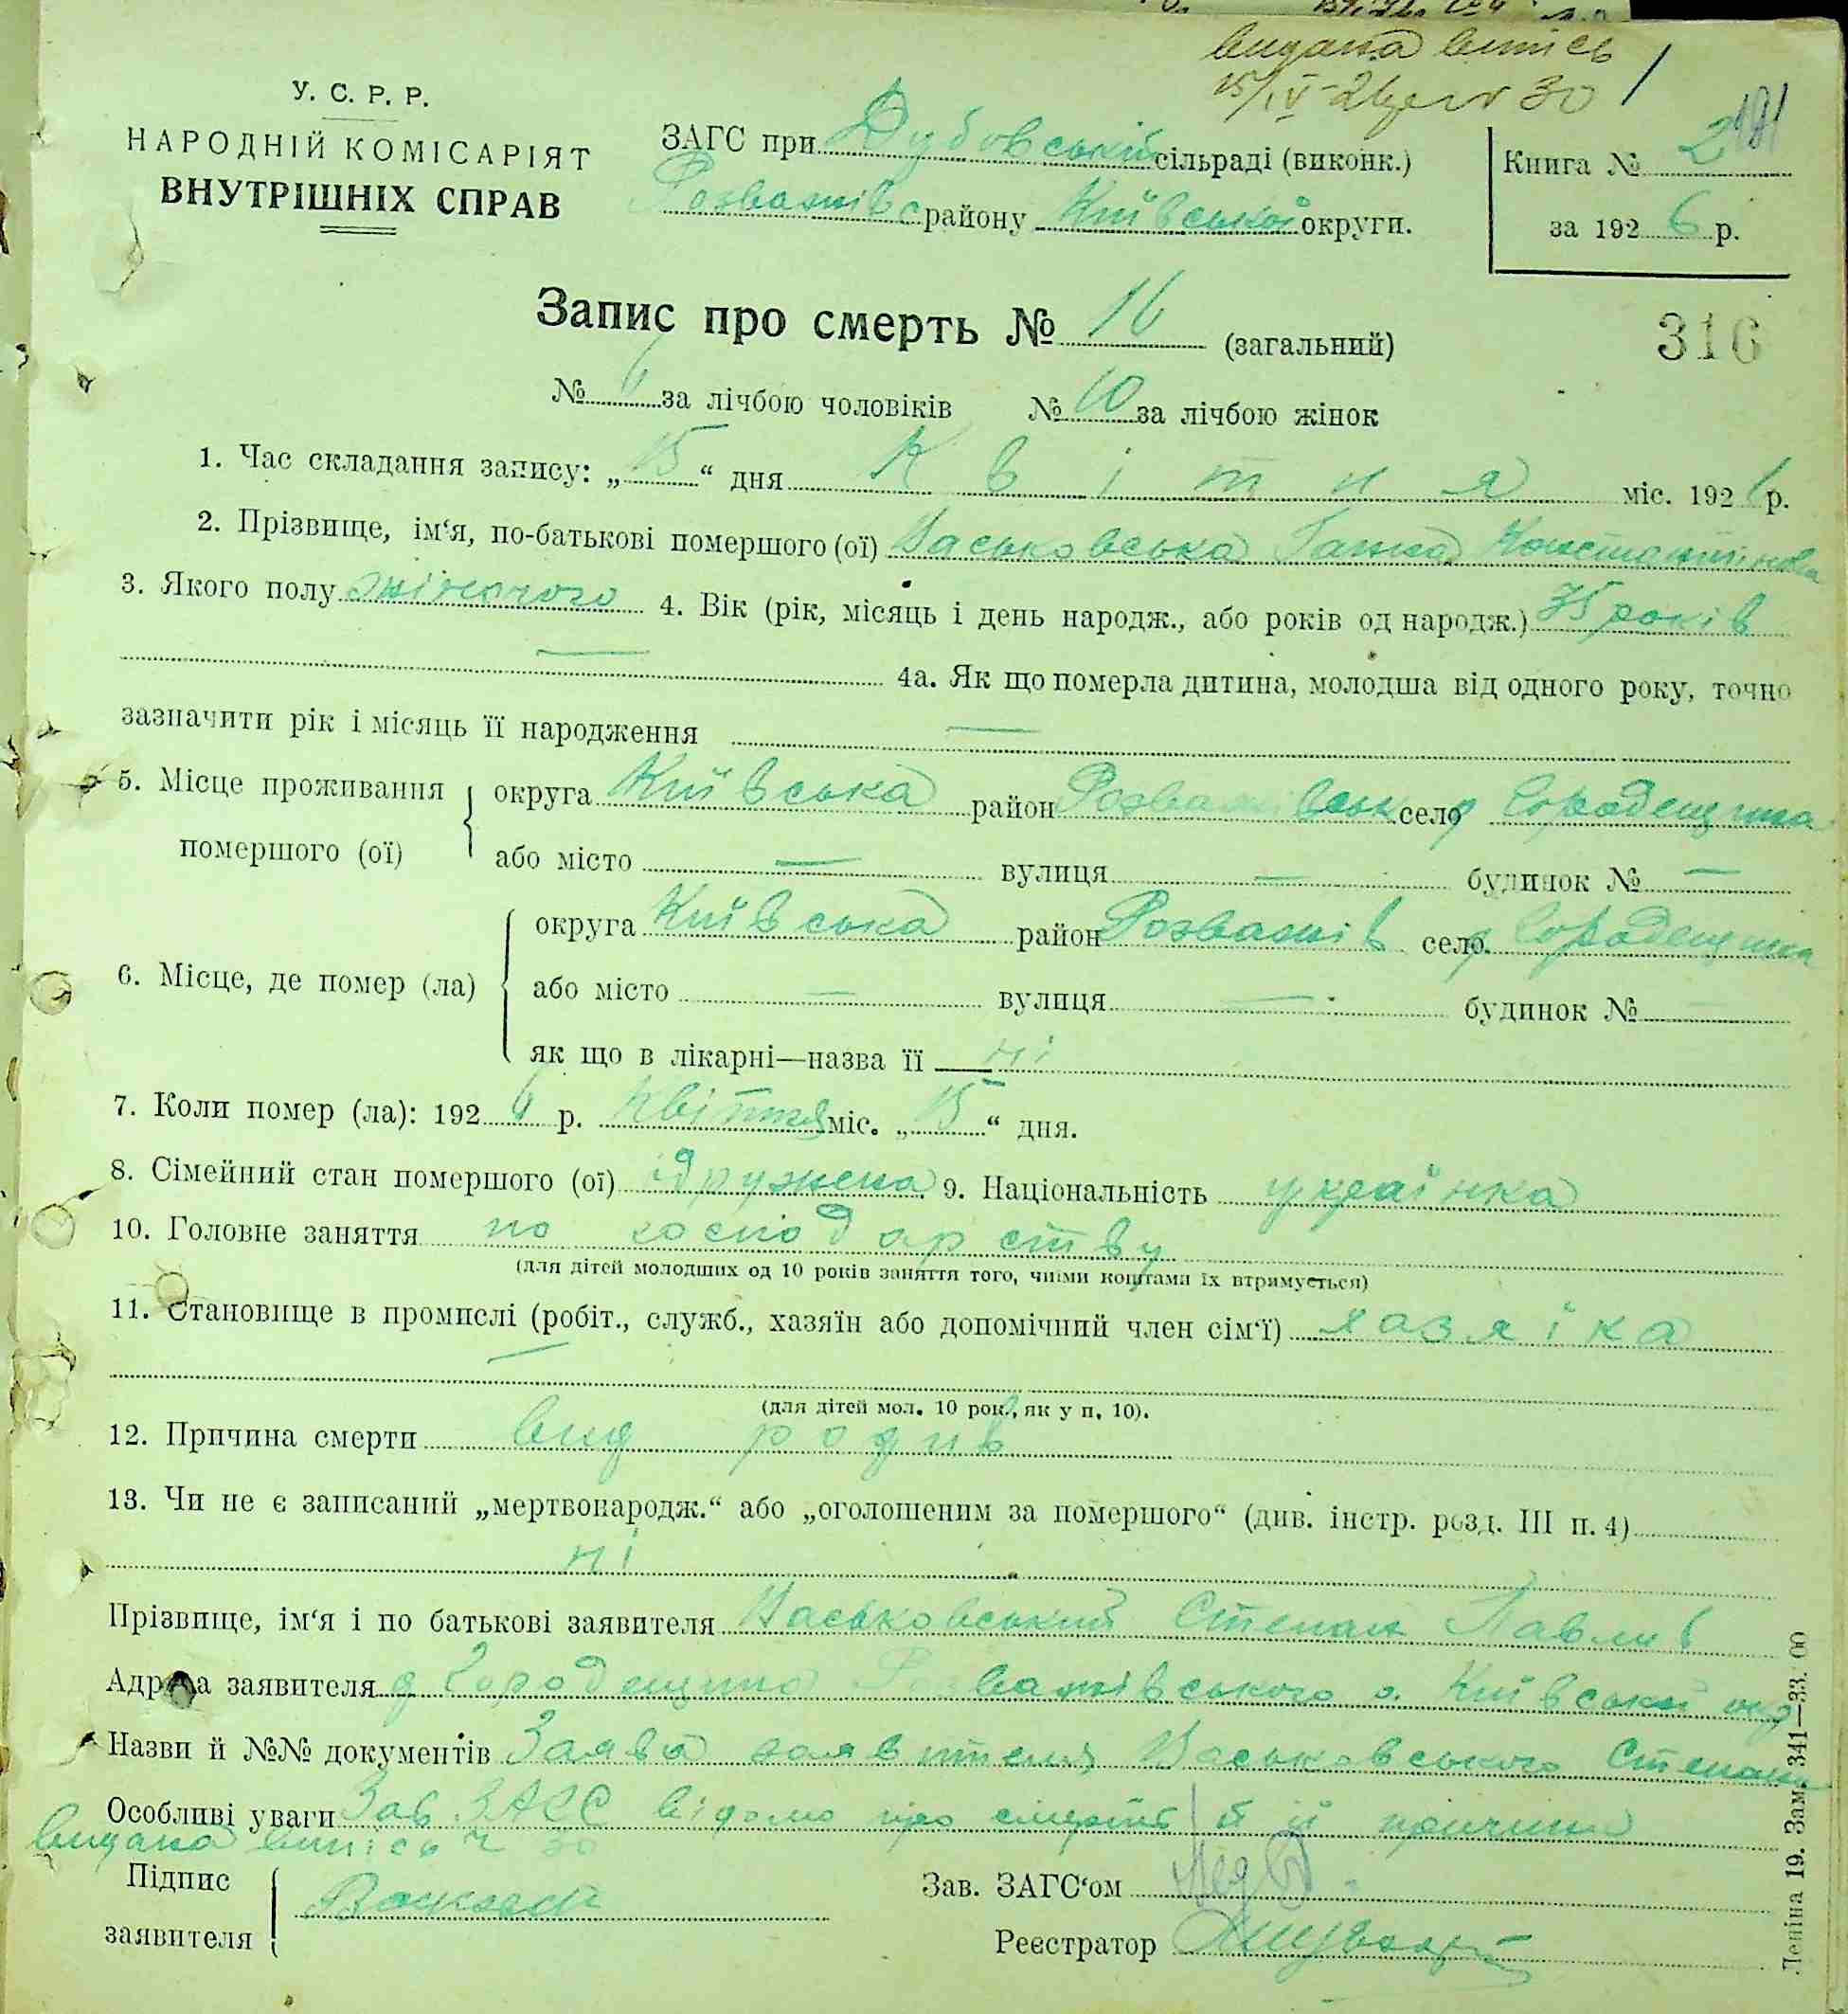 видана випісь
15/IV 30
У. С. Р. Р.
НАРОДНІЙ КОМІСАРІЯТ
ВНУТРІШНІХ СПРАВ
ЗАГС при Дубовській сільраді (виконк.)
Розважівс району Київської округи.
Книга № 2
за 1926 р.
Запис про смерть № 16 (загальний)
316
№ 6 за лічбою чоловіків № 10 за лічбою жінок
1. Час складання запису: „15“ дня Квітня міс. 1926 р.
2. Прізвище, ім‘я, по-батькові помершого (ої) Васьковська Ганна Констянтінова
3. Якого полу жіночого 4. Вік (рік, місяць і день народж., або років од народж.) 35 років
— 4а. Як що померла дитина, молодша від одного року, точно
зазначити рік і місяць її народження —
5. Місце проживання помершого (ої)
округа Київська район Розважівськ село Городещина
або місто — вулиця — будинок № —
6. Місце, де помер (ла)
округа Київська район Розважів село Городещина
або місто — вулиця — будинок №
як що в лікарні—назва її ні
7. Коли помер (ла): 1926 р. Квітня міс. „15“ дня.
8. Сімейний стан помершого (ої) здружена 9. Національність українка
10. Головне заняття по господарству
(для дітей молодших од 10 років заняття того, чиїми коштами їх втримується)
11. Становище в промислі (робіт., служб., хазяїн або допомічний член сім‘ї) хазяїка
—
(для дітей мол. 10 рок., як у п. 10).
12. Причина смерти вид родив
13. Чи не є записаний „мертвонародж.“ або „оголошеним за помершого“ (див. інстр. розд. III п. 4)
ні
Прізвище, ім‘я і по батькові заявителя Васьковський Степан Павлів
Адреса заявителя д Городещина Розважівського р. Київської окр
Назви й №№ документів Заява заявителя Васьковського Степана
Особливі уваги Зав. ЗАГС відомо про смерть й її причини
видана випісь
Підпис заявителя
Зав. ЗАГС‘ом
Реєстратор
Леніна 19. Зам. 341—33. 00